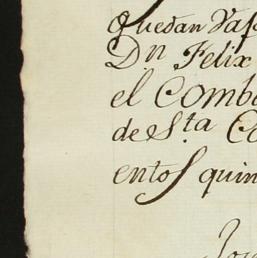 quedan
Dn Felix
el Comb
de Sta Co
entos quin